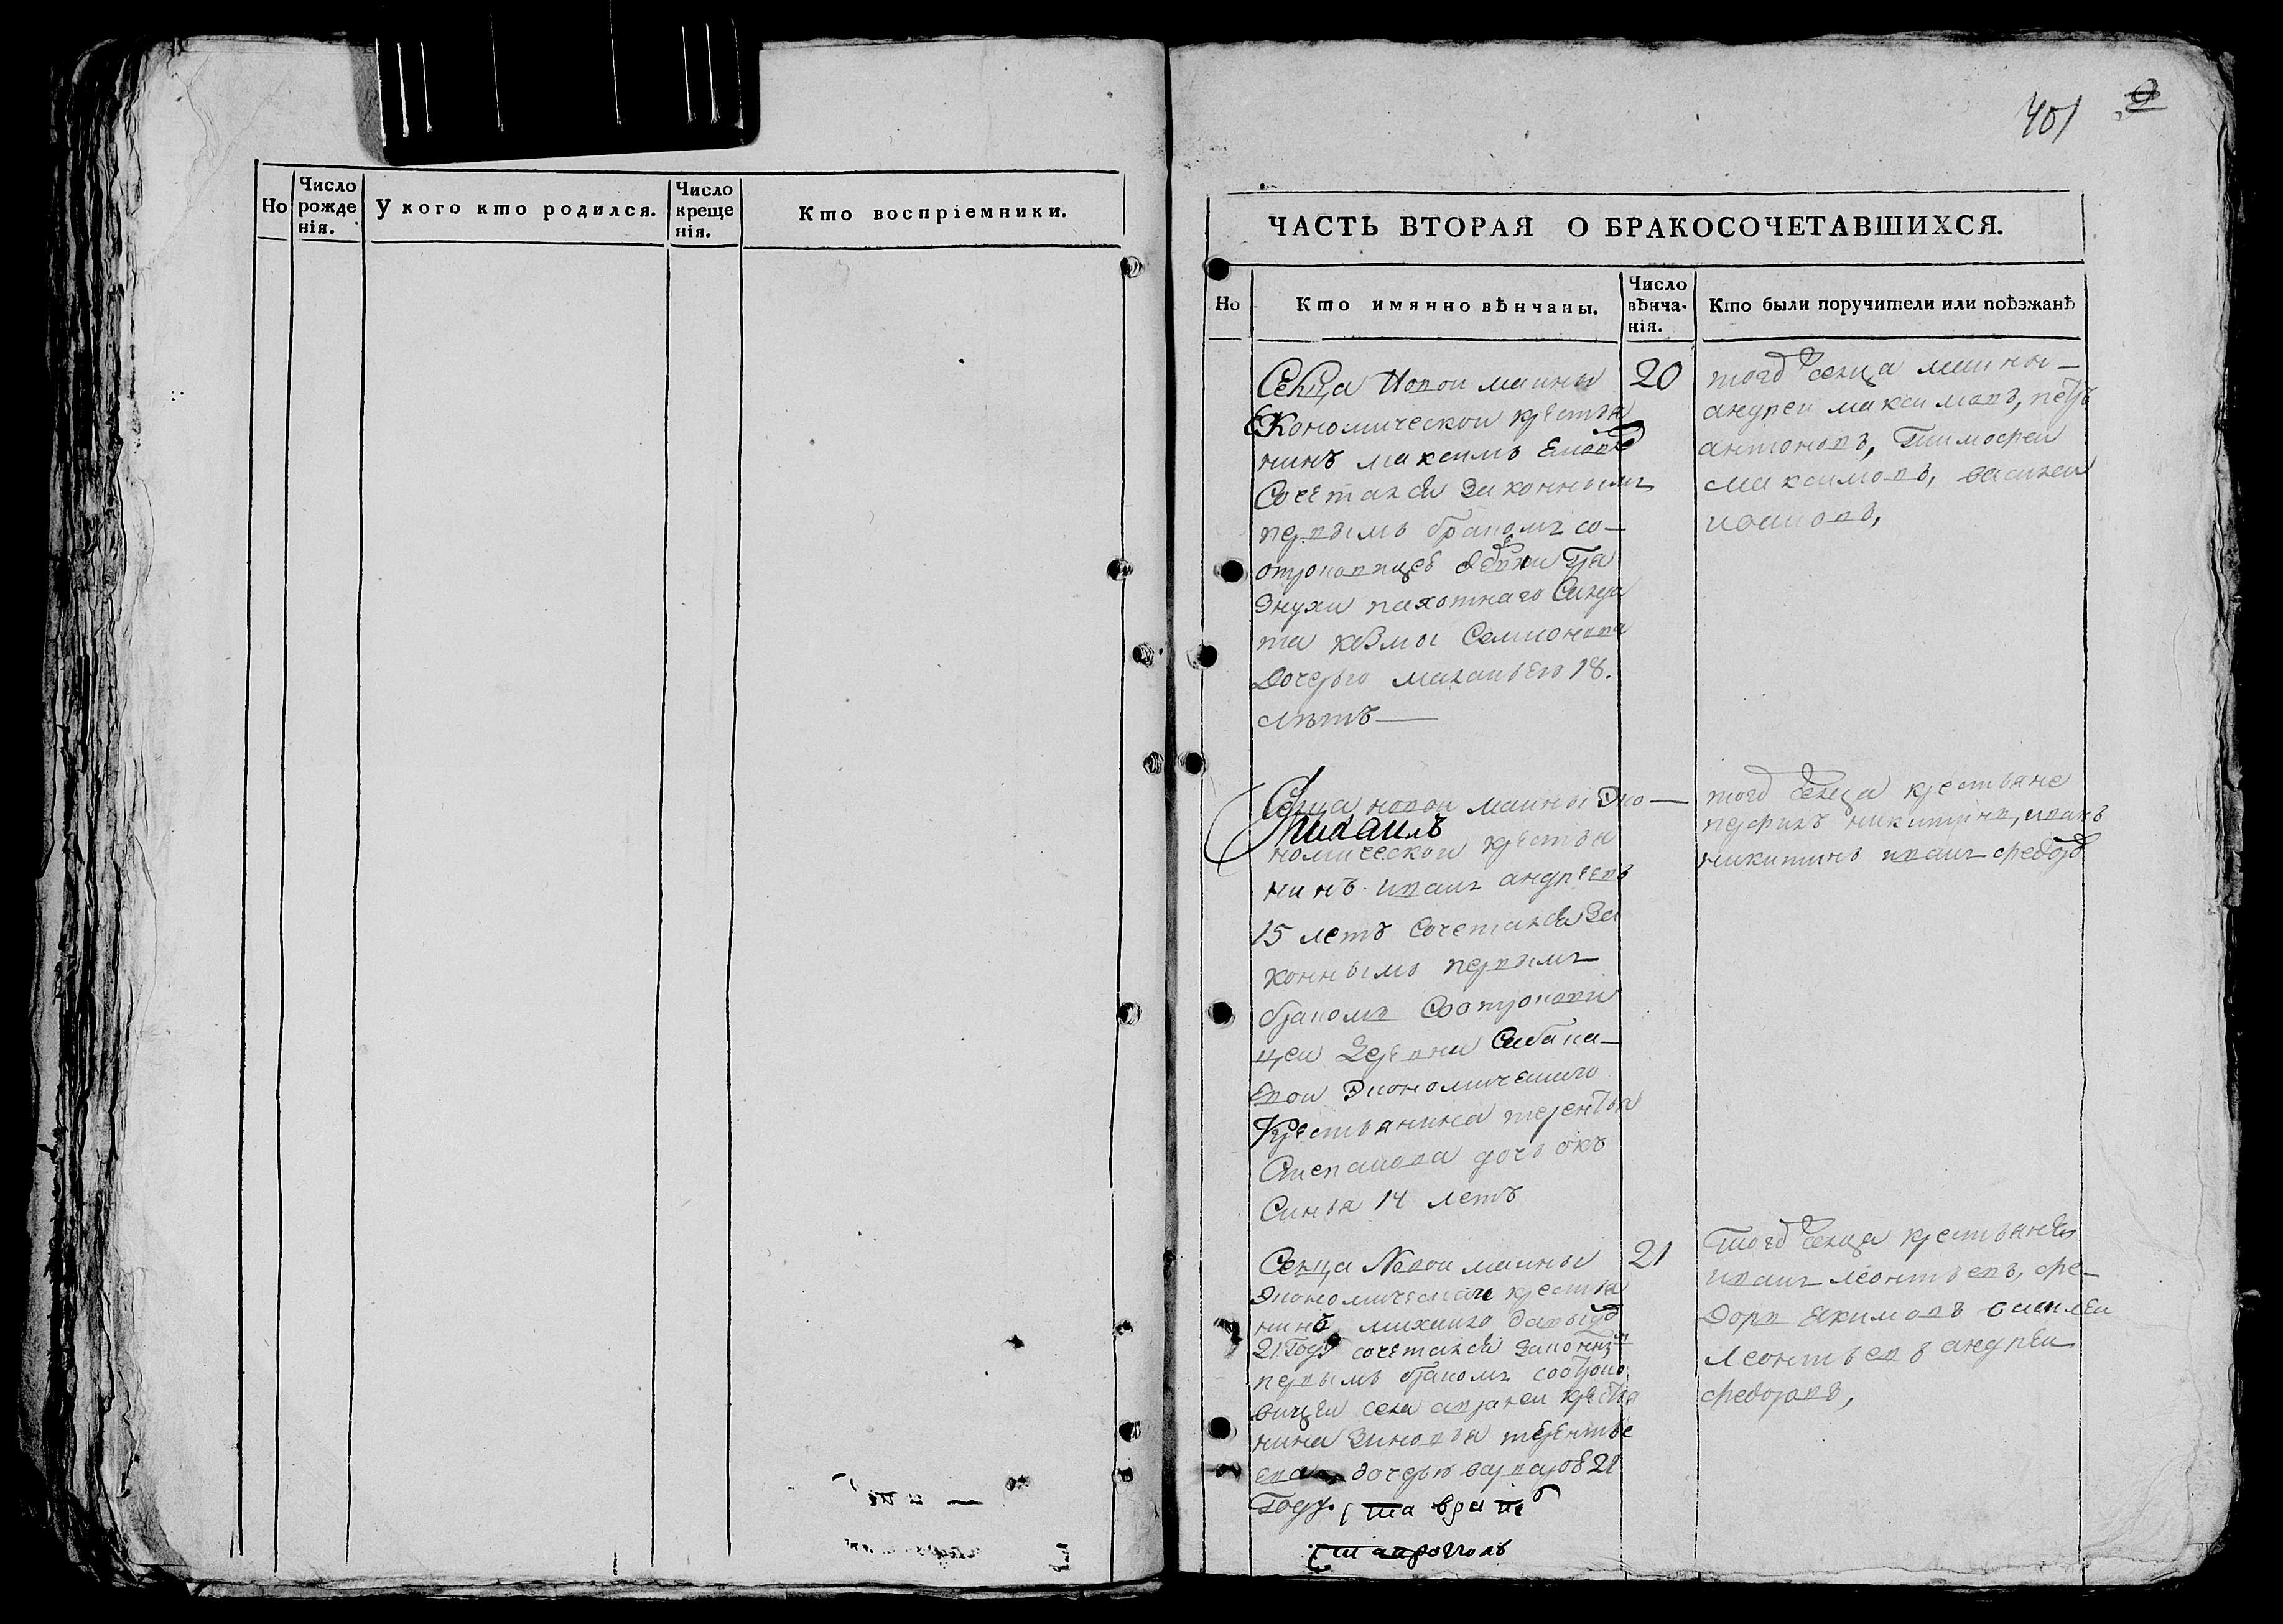 Но
Число рожде нія.
У кого кто родился.
Число креще нія.
Кто воспріемники.
401
ЧАСТЬ ВТОРАЯ О БРАКОСОЧЕТАВШИХСЯ.
Но
Кто имянно вѣнчаны.
Число вѣнча- нія.
Кто были поручители или поѣзжанѣ
Села Новои маины
Економическои крестья
нинъ максимъ
Сочетался законнымъ
первымъ бракомъ со
отроковицеѣ
пахотнаго Салда
та козмы Семионова
Дочерью маланьею 18.
лѣтъ
20
того села маины
андреи максимовъ, петръ
антоновъ, Тимофеи
максимовъ, василеи
ивановъ,
Села новои маины Эко
михаилъ
номическои крестья
нинъ иванъ андреевъ
15 летъ Сочетался За
коннымъ первымъ
бракомъ Соотрокови
цеи Деревни Сабака
евои Экономическаго
Крестьянина терентья
Степанова дочь окъ
Синья 14 летъ
того села крестьяне
перфилъ никитинъ, иванъ
никитинъ иванъ федоро
Села Новои маины
Экономическаи крестья
нинъ михаило давыдо
21 Году сочетался законны
первымъ бракомъ соотроко
вицеи села крестья
нина Зиновья терентье
ева дочерью варварое 21
Году.
21
того села крестьянея
иванъ леонтьевъ, фе
доръ екимовъ василеи
леонтьевъ андреи
федоровъ,